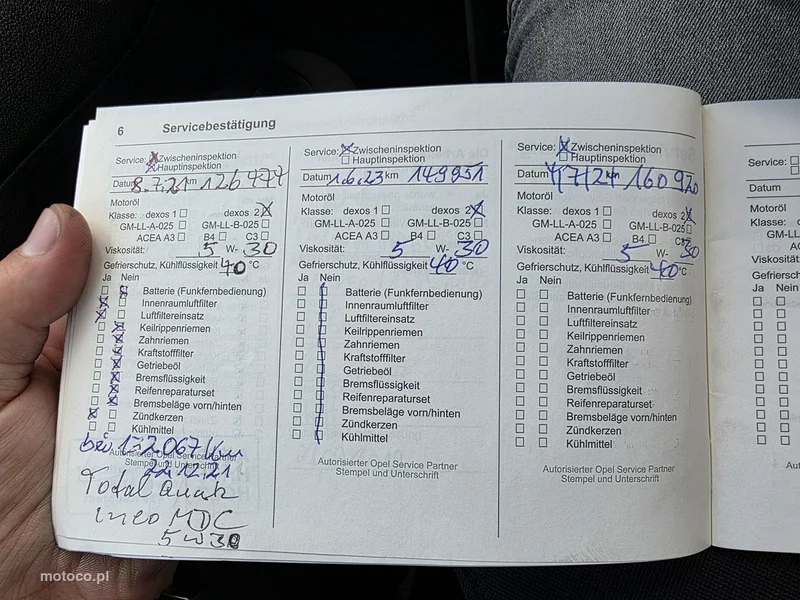 6 Servicebestätigung
Service: Zwischeninspektion
Hauptinspektion
Datum 8.7.21 km 126474
Motoröl
Klasse: dexos 1 dexos 2
GM-LL-A-025 GM-LL-B-025
ACEA A3 B4 C3
Viskosität: 5 W- 30
Gefrierschutz, Kühlflüssigkeit 40 °C
Ja Nein
Batterie (Funkfernbedienung)
Innenraumluftfilter
Luftfiltereinsatz
Keilrippenriemen
Zahnriemen
Kraftstofffilter
Getriebeöl
Bremsflüssigkeit
Reifenreparaturset
Bremsbeläge vorn/hinten
Zündkerzen
Kühlmittel
bei 132067 Km
Autorisierter Opel Service Partner
Stempel und Unterschrift
22.12.21
Total Quartz
Ineo MDC
5w30
Service: Zwischeninspektion
Hauptinspektion
Datum 1.6.23 km 149951
Motoröl
Klasse: dexos 1 dexos 2
GM-LL-A-025 GM-LL-B-025
ACEA A3 B4 C3
Viskosität: 5 W- 30
Gefrierschutz, Kühlflüssigkeit 40 °C
Ja Nein
Batterie (Funkfernbedienung)
Innenraumluftfilter
Luftfiltereinsatz
Keilrippenriemen
Zahnriemen
Kraftstofffilter
Getriebeöl
Bremsflüssigkeit
Reifenreparaturset
Bremsbeläge vorn/hinten
Zündkerzen
Kühlmittel
Autorisierter Opel Service Partner
Stempel und Unterschrift
Service: Zwischeninspektion
Hauptinspektion
Datum km 160920
Motoröl
Klasse: dexos 1 dexos 2
GM-LL-A-025 GM-LL-B-025
ACEA A3 B4 C3
Viskosität: 5 W- 30
Gefrierschutz, Kühlflüssigkeit 40 °C
Ja Nein
Batterie (Funkfernbedienung)
Innenraumluftfilter
Luftfiltereinsatz
Keilrippenriemen
Zahnriemen
Kraftstofffilter
Getriebeöl
Bremsflüssigkeit
Reifenreparaturset
Bremsbeläge vorn/hinten
Zündkerzen
Kühlmittel
Autorisierter Opel Service Partner
Stempel und Unterschrift
Service:
Datum
Motoröl
Klasse:
GM-L
AC
Viskosität:
Gefriersch
Ja Nein
motoco.pl